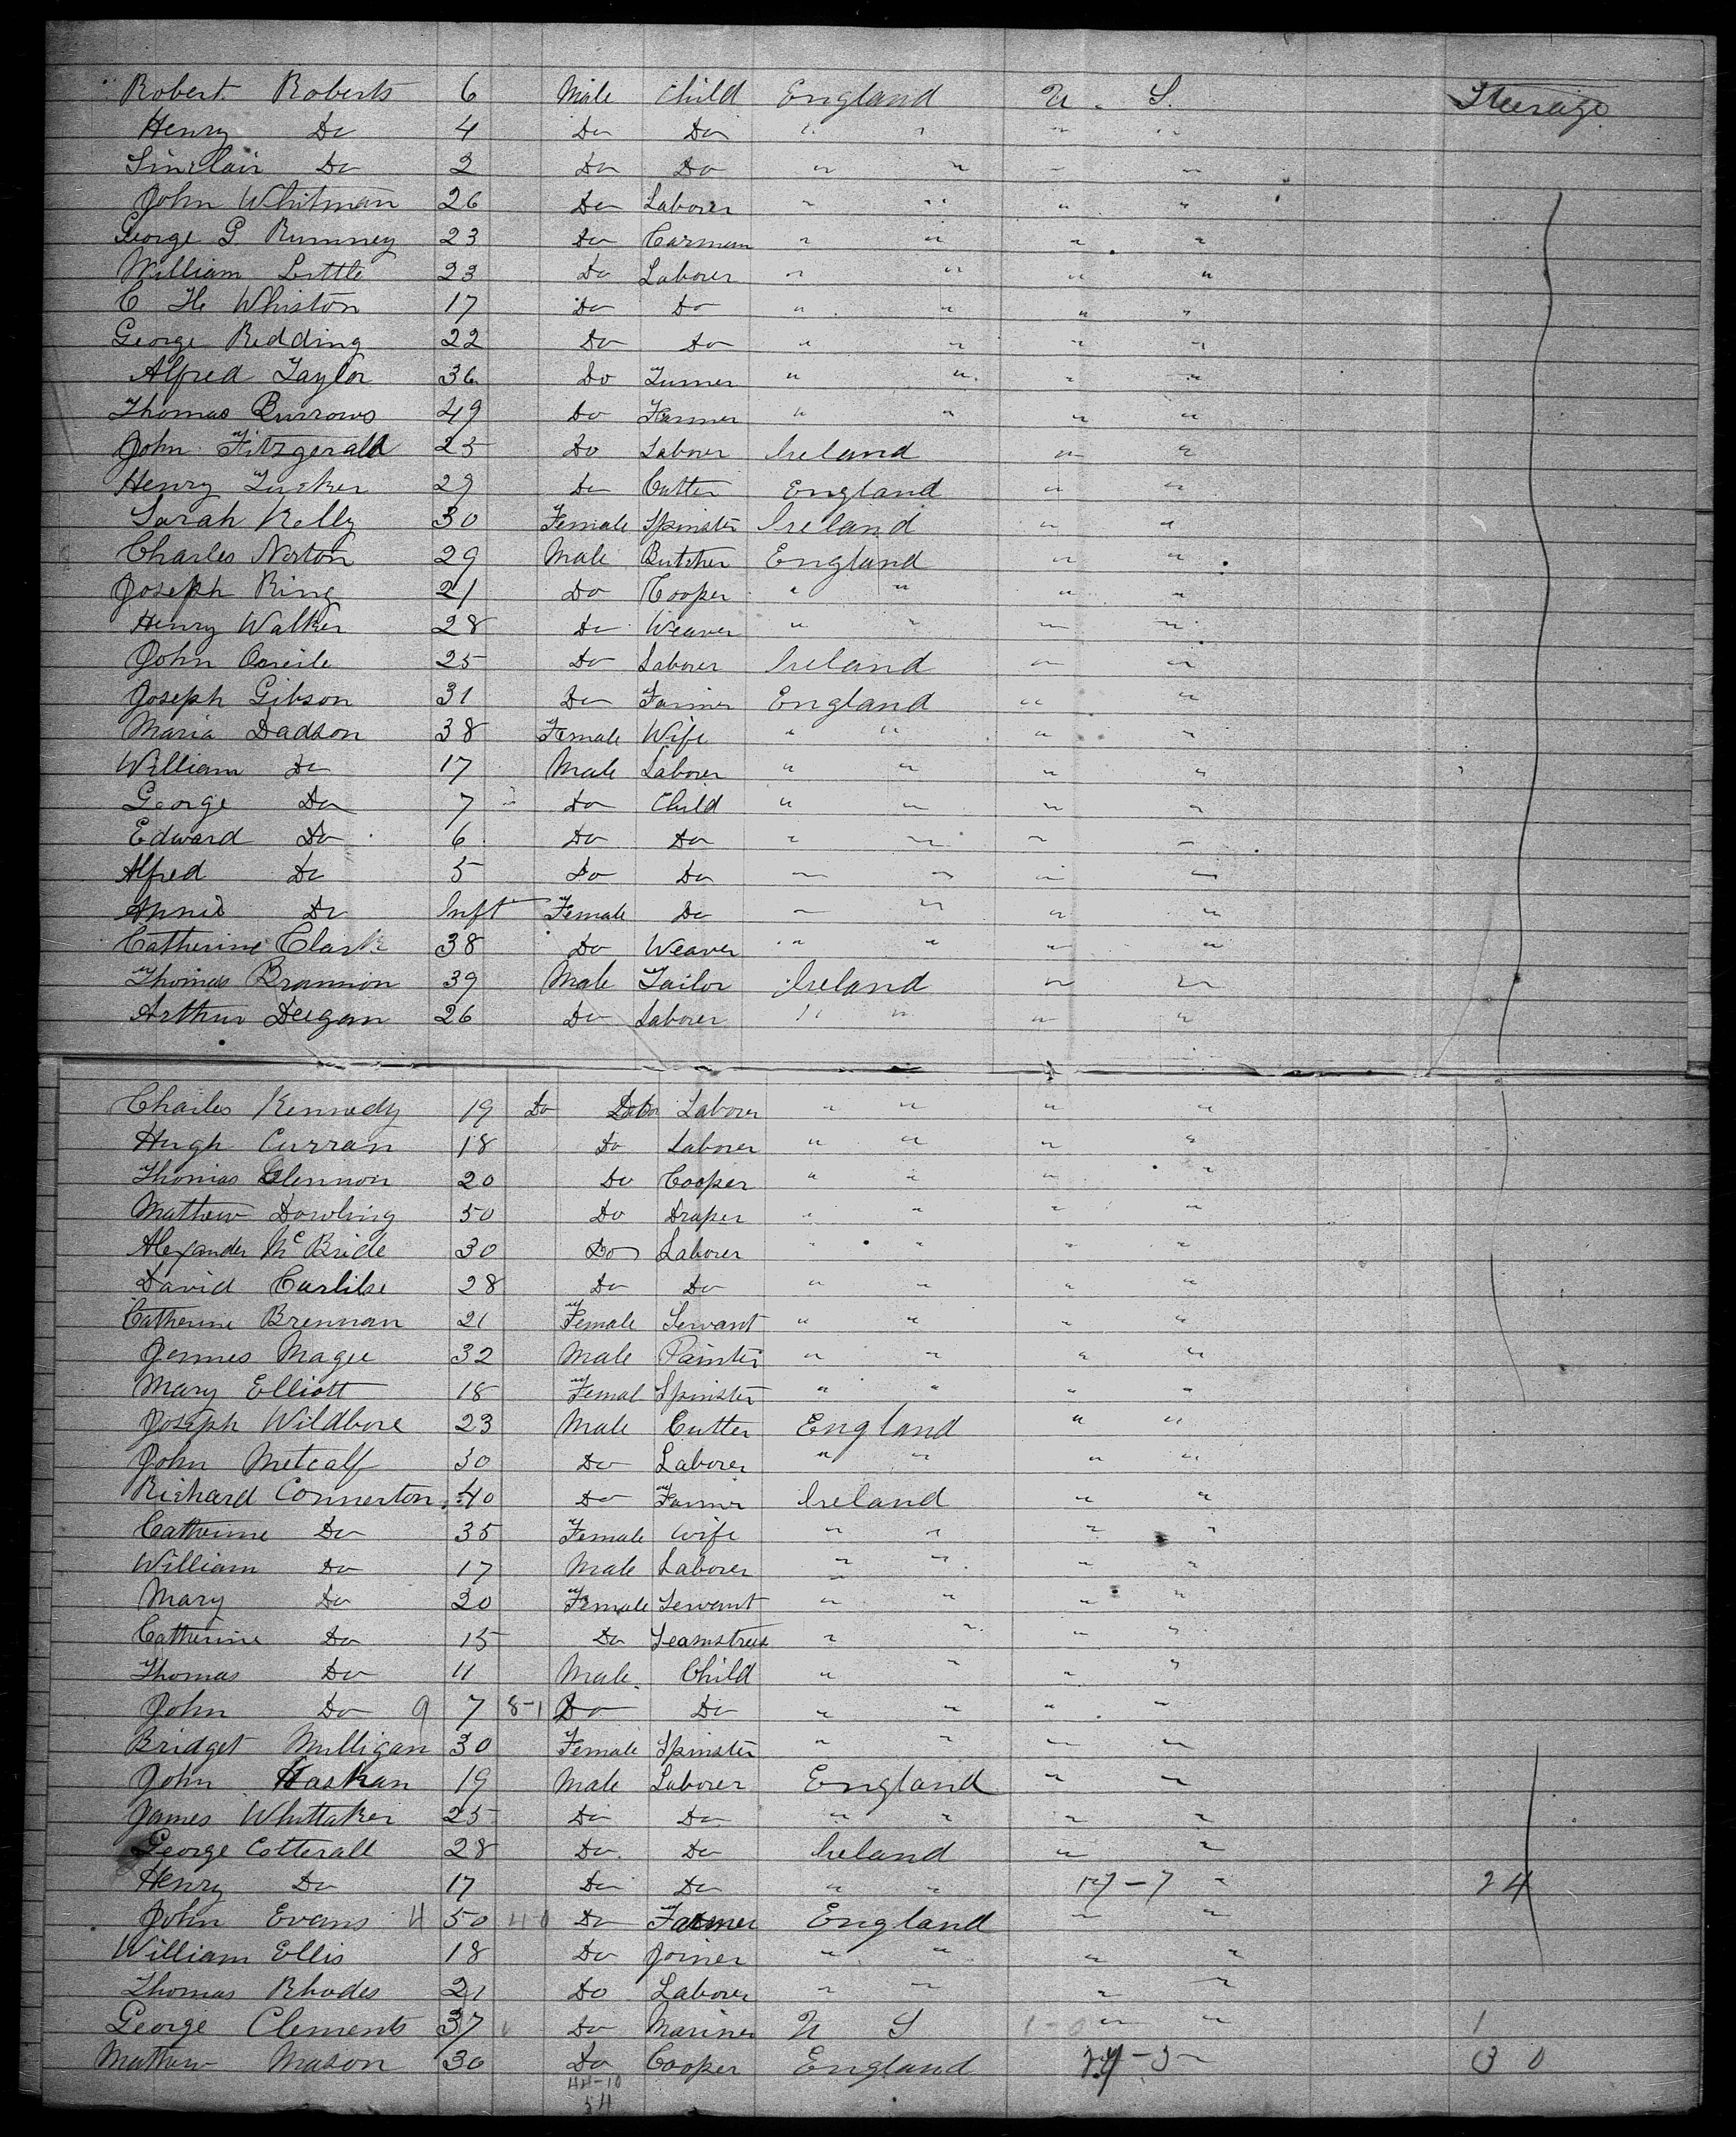 Robert Roberts 6 Male Child England U. S. Steerage
Henry Do 4 Do Do " " " "
Sinclair Do 2 Do Do " " " "
John Whitman 26 Do Laborer " " " "
George P. Rumney 23 Do Carman " " " "
William Little 23 Do Laborer " " " "
C H Whiston 17 Do Do " " " "
George Redding 22 Do Do " " " "
Alfred Taylor 36 Do Turner " " " "
Thomas Burrows 49 Do Farmer " " " "
John Fitzgerald 25 Do Laborer Ireland " "
Henry Tucker 29 Do Cutter England " "
Sarah Kelly 30 Female Spinster Ireland " "
Charles Norton 29 Male Butcher England " "
Joseph Ring 21 Do Cooper " " " "
Henry Walker 28 Do Weaver " " " "
John 25 Do Laborer Ireland " "
Joseph Gibson 31 Do Farmer England " "
Maria Dadson 38 Female Wife " " " "
William Do 17 Male Laborer " " " "
George Do 7 Do Child " " " "
Edward Do 6 Do Do " " " "
Alfred Do 5 Do Do " " " "
Annie Do Inft Female Do " " " "
Catherine Clark 38 Do Weaver " " " "
Thomas Brannion 39 Male Tailor Ireland " "
Arthur Deegan 26 Do Laborer " " " "
Charles Kennedy 19 Do Do Laborer " " " "
Hugh Curran 18 Do Laborer " " " "
Thomas Glennon 20 Do Cooper " " " "
Mathew Dowling 50 Do Draper " " " "
Alexander McBride 30 Do Laborer " " " "
David Carlilse 28 Do Do " " " "
Catherine Brennan 21 Female Servant " " " "
James Magee 32 Male Painter " " " "
Mary Elliott 18 Femal Spinster " " " "
Joseph Wildbore 23 Male Cutter England " "
John Metcalf 30 Do Laborer " " " "
Richard Connerton 40 Do Farmer Ireland " "
Catherine Do 35 Female Wife " " " "
William Do 17 Male Laborer " " " "
Mary Do 20 Female Servant " " " "
Catherine Do 15 Do Seamstress " " " "
Thomas Do 11 Male Child " " " "
John Do 9 7 8-1 Do Do " " " "
Bridget Mulligan 30 Female Spinster " " " "
John Haskan 19 Male Laborer England " "
James Whittaker 25 Do Do " " " "
George Cotterall 28 Do Do Ireland " "
Henry Do 17 Do Do " " 17-7 " 24
John Evans 4 50 40 Do Farmer England " "
William Ellis 18 Do Joiner " " " "
Thomas Rhodes 21 Do Laborer " " " "
George Clements 37 Do Mariner U S 1-0 " " 1
Mathew Mason 30 Do Cooper England 30
44-10
54